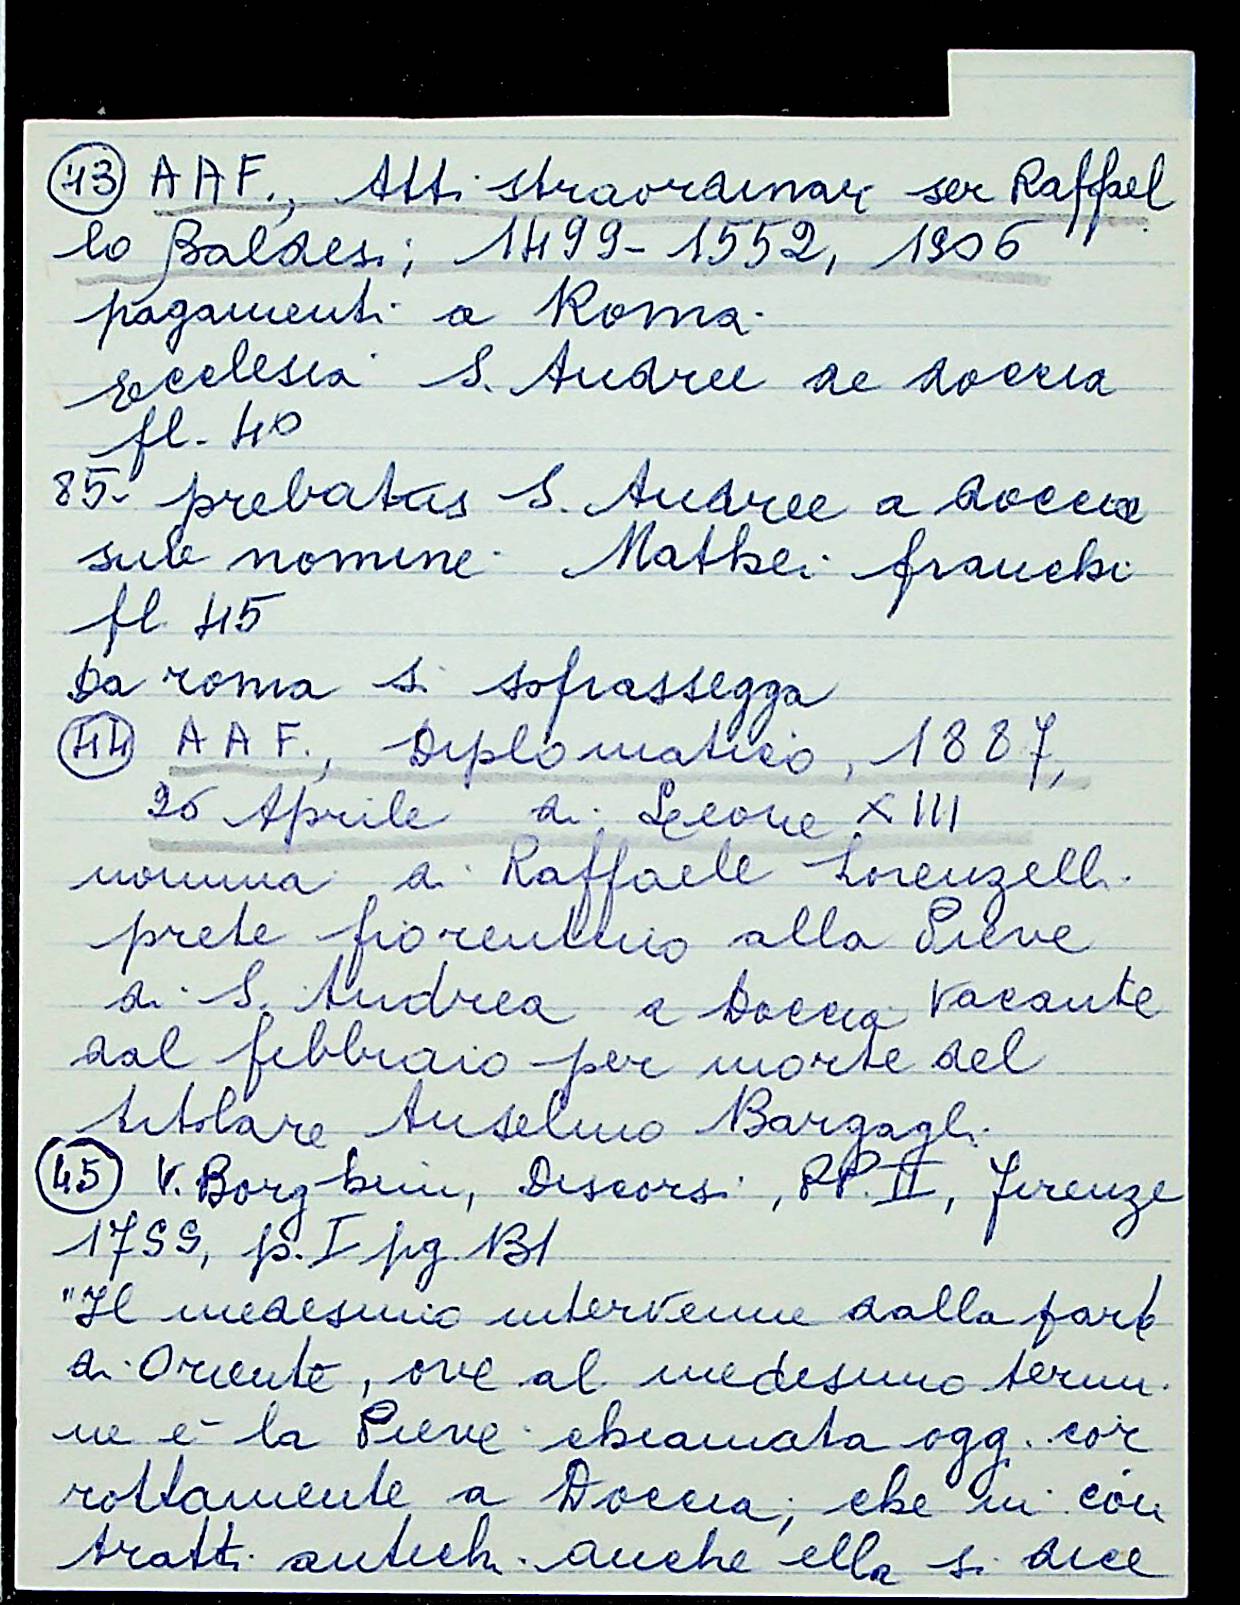 43 AAF., Atti straordinari ser Raffael
lo Baldesi; 1499-1552, 1306
pagamenti a Roma.
Ecclesia S. Andree de doccia
fl. 40
85- prebatus S. Andree a doccia
sub nomine Mathei franchi
fl 45
Da roma si soprassegga
44 AAF., Diplomatico, 1887,
26 Aprile di Leone XIII
nomina di Raffaele Lorenzelli
prete fiorentino alla Pieve
di S. Andrea a Doccia vacante
dal febbraio per morte del
titolare Anselmo Bargagli.
45 V. Borghini, Discorsi, PP. II, Firenze
1755, p. I pg.
"Il medesimo intervenne dalla parte
di Oriente, ove al medesimo termi
ne è la Pieve chiamata oggi cor
rottamente a Doccia; che in con
tratti antichi anche ella si dice